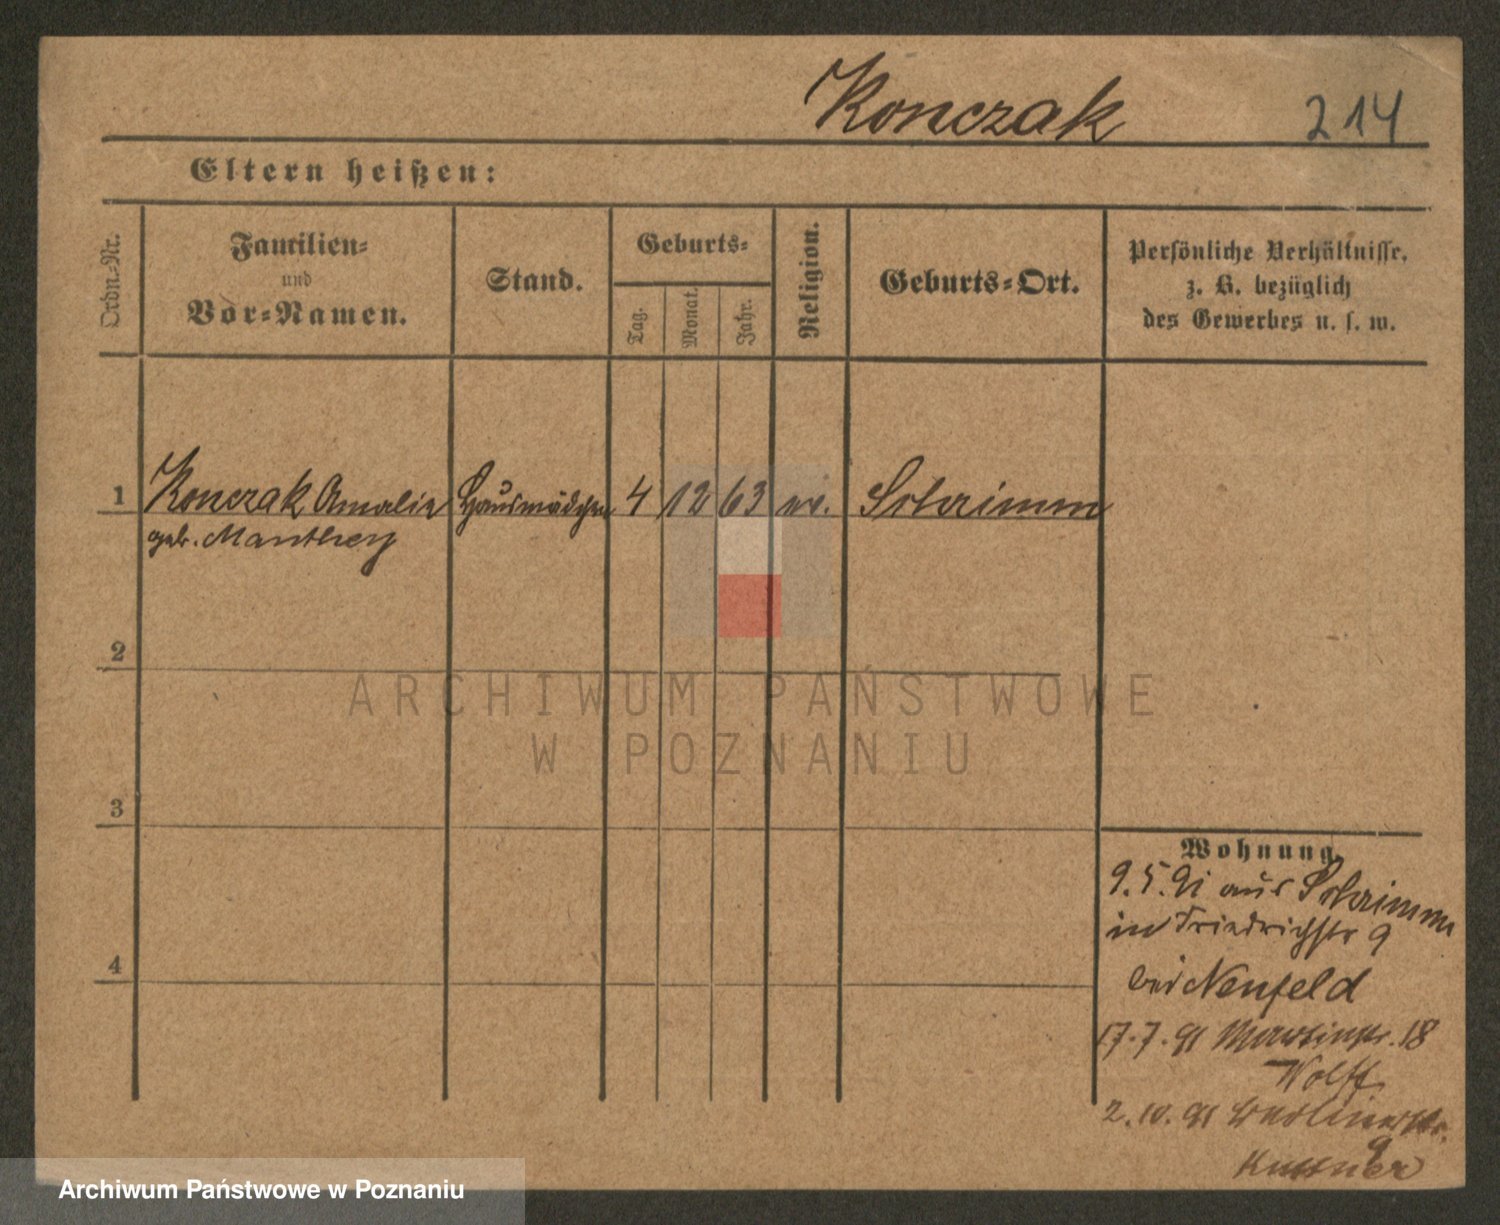 Konczak 214
Eltern heißen:
Ordn.-Nr.
Familien-
und
Vor-Namen.
Stand.
Geburts-
Tag.
Monat.
Jahr.
Religion.
Geburts-Ort.
Persönliche Verhältnisse,
z. B. bezüglich
des Gewerbes u. s. w.
1 Konczak Amalie Hausmädchen 4 12 63 Schrimm
geb. Manthey
2
3
4
ARCHIWUM PAŃSTWOWE
W POZNANIU
Wohnung.
9.5.91 aus Schrimm
in Friedrichstr 9
bei Neufeld
17.7.91 Martinstr. 18
Wolff
2.10.91 Berlinerstr.
9
Kuttner
Archiwum Państwowe w Poznaniu